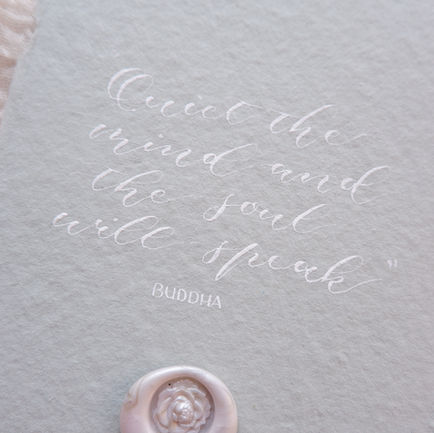 Quiet the
mind and
the soul
will speak"
BUDDHA